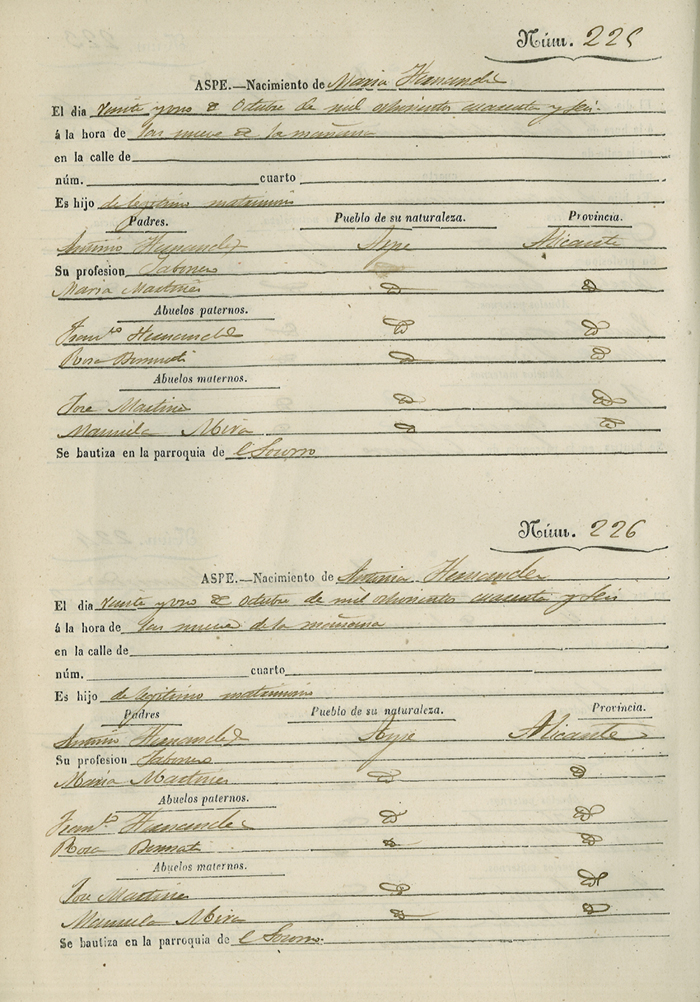 Núm. 225
ASPE.—Nacimiento de Maria Hernandez
El dia veinte y uno de Octubre de mil ochocientos cuarenta y seis
á la hora de las nueve de la mañana
en la calle de
núm. cuarto
Es hijo de legitimo matrimonio
Padres. Pueblo de su naturaleza. Provincia.
Antonio Hernandez Aspe Alicante
Su profesion Jabonero
Maria Martines id id
Abuelos paternos.
Franco Hernandez id id
Rosa id id
Abuelos maternos.
Jose Martines id id
Manuela Mira id id
Se bautiza en la parroquia de el Socorro
Núm. 226
ASPE.—Nacimiento de Antonia Hernandez
El dia veinte y uno de Octubre de mil ochocientos cuarenta y seis
á la hora de las nueve de la mañana
en la calle de
núm. cuarto
Es hijo de legitimo matrimonio
Padres Pueblo de su naturaleza. Provincia.
Antonio Hernandez Aspe Alicante
Su profesion Jabonero
Maria Martines id id
Abuelos paternos.
Franco Hernandez id id
Rosa id id
Abuelos maternos.
Jose Martines id id
Manuela Mira id id
Se bautiza en la parroquia de el Socorro